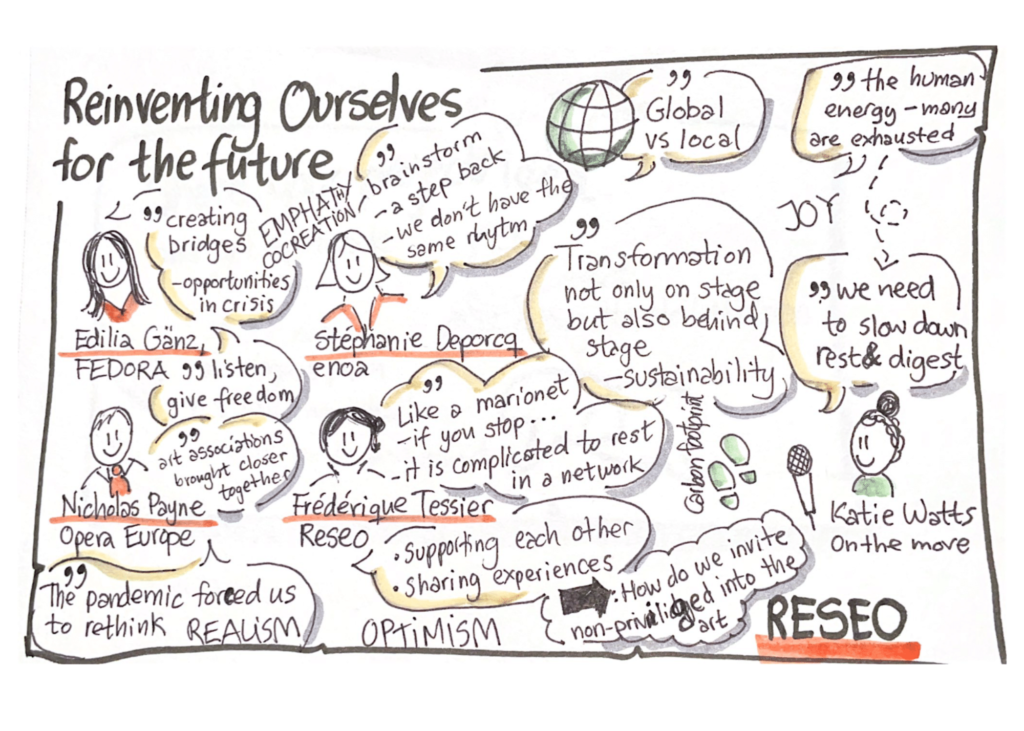 Reinventing Ourselves
for the future
" creating
bridges
-opportunities
in crisis
EMPHATHY
COCREATION
" brainstorm
- a step back
- we don't have the
same rhytm
" Global
vs local
" the human
energy - many
are exhausted
JOY
Edilia Gänz,
FEDORA
" listen,
give freedom
Stéphanie Deporcq
enoa
" Transformation
not only on stage
but also behind
stage
-sustainability
" we need
to slow down
rest & digest
Nicholas Payne
Opera Europe
" art associations
brought closer
together
Frédérique Tessier
Reseo
" Like a marionet
- if you stop...
- it is complicated to rest
in a network
Carbon footprint
Katie Watts
On the move
" The pandemic forced us
to rethink
REALISM
• Supporting each other
• sharing experiences
OPTIMISM
: How do we invite
non-priviliged into the
art
RESEO